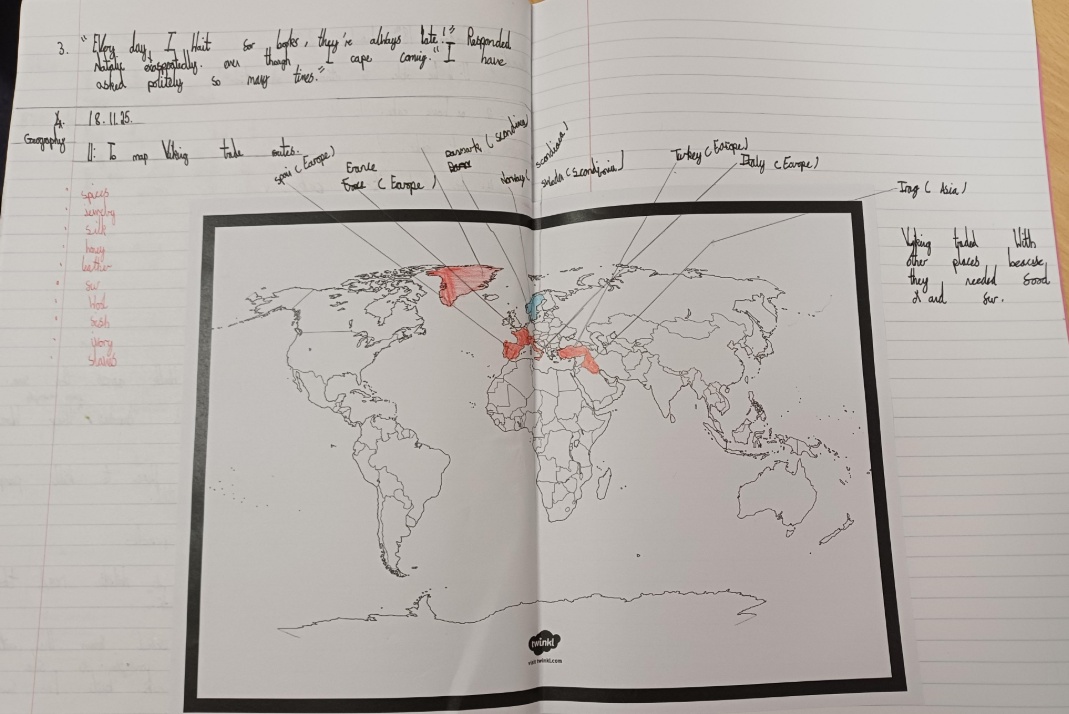 3. "Every day, I Wait for books, they're always late!" Responded
Natalie exasperatedly. even though I cape coming." I have
asked politely so many times."
4. 18.11.25.
Geography
LI: To map Viking trade routes.
spices
jewelry
silk
honey
fur
Wool
fish
ivory
slaves
Spain (Europe)
France
(Europe)
Denmark (Scandinavia)
Norway (
Scandinavia)
Sweden (Scandinavia)
Turkey (Europe)
Italy (Europe)
Iraq (Asia)
Vyking traded With
other places because
they needed food
and fur.
twinkl
visit twinkl.com